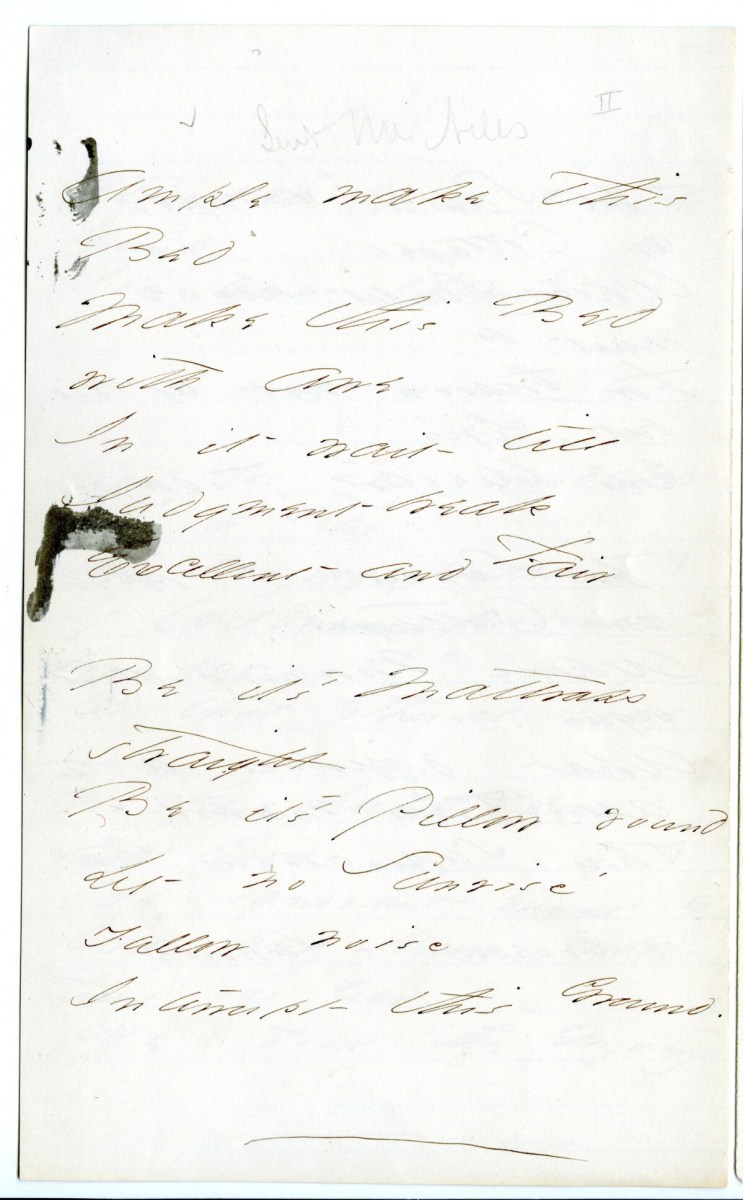 II
Sent Mr Niles
Ample make this
Bed
Make this Bed
with awe
In it wait till
Judgment break
Excellent and Fair
Be it's Mattrass
straight
Be it's Pillow round
Let no Sunrise'
Yellow noise
Interrupt this Ground.